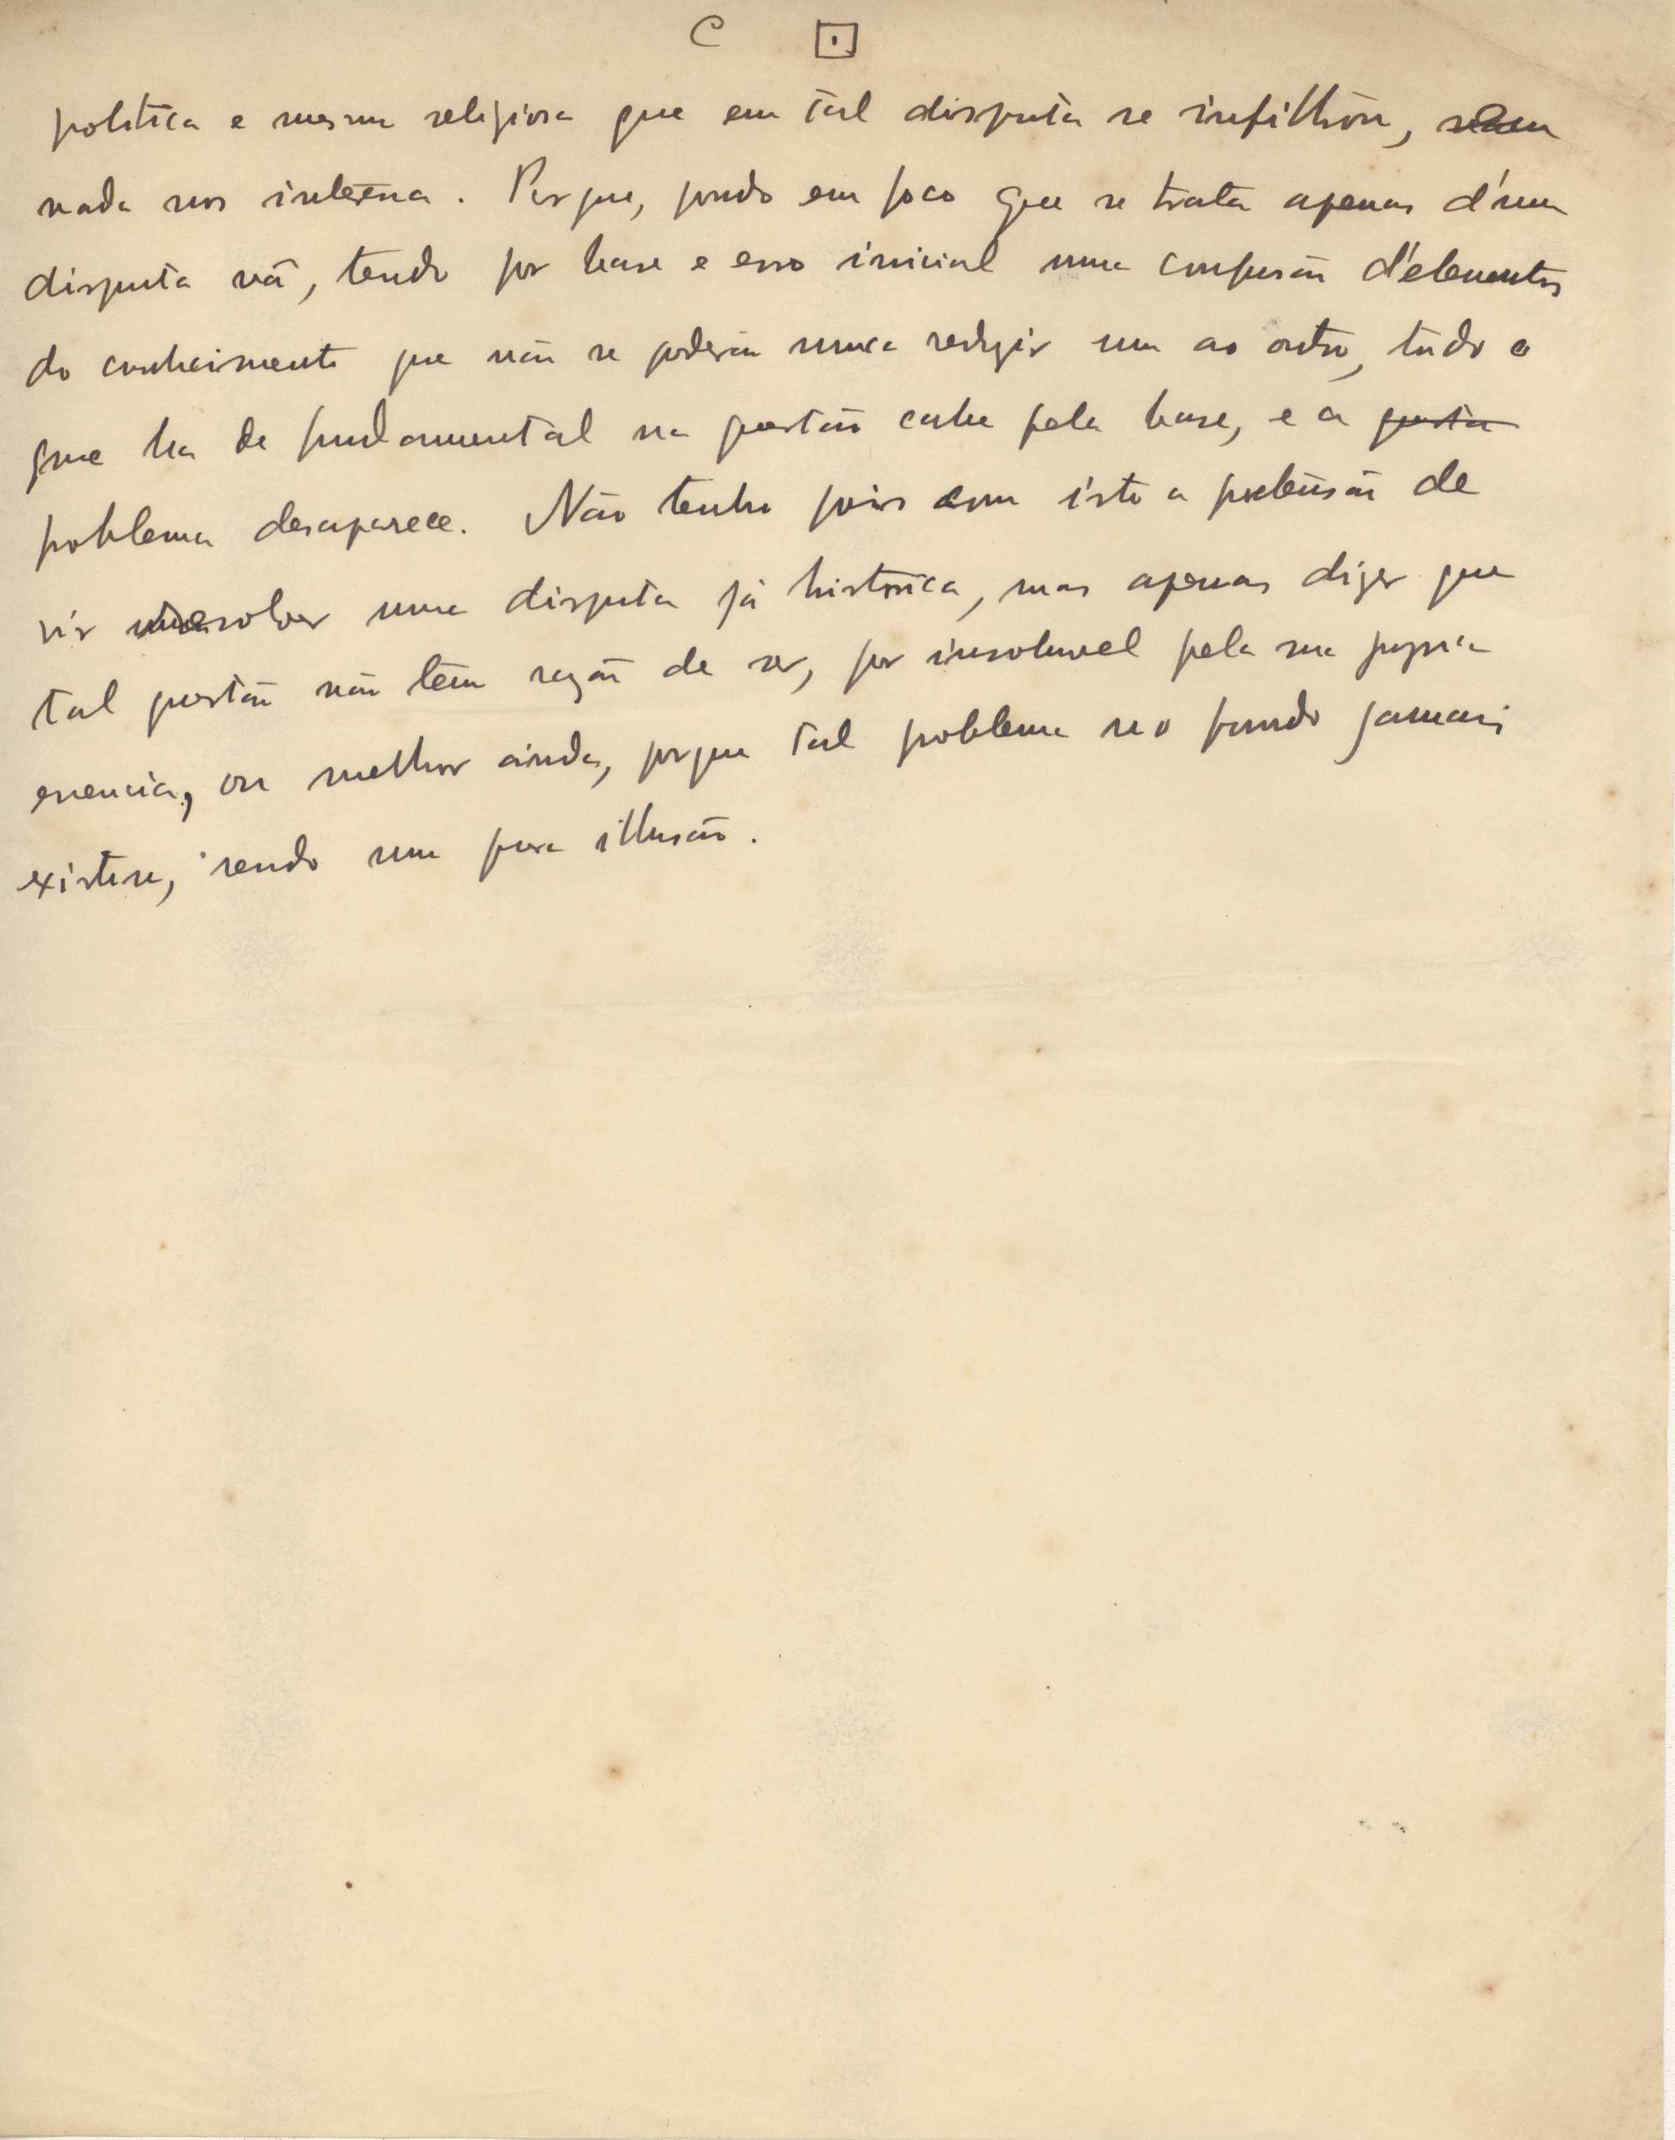 C
politica e mesmo religiosa que em tal disputa se infiltrou,
nada nos interessa. Porque, pondo em foco que se trata apenas d'uma
disputa vã, tendo por base e erro inicial uma confusão d'elementos
do conhecimento que não se poderão nunca reduzir um ao outro, tudo o
que ha de fundamental na questão cahe pela base, e a questa
problema desaparece. Não tenho pois com isto a pretensão de
vir resolver uma disputa já historica, mas apenas dizer que
tal questão não têm razão de ser, por insoluvel pela sua propria
essencia, ou melhor ainda, porque tal problema no fundo jamais
existiu, sendo uma pura illusão.